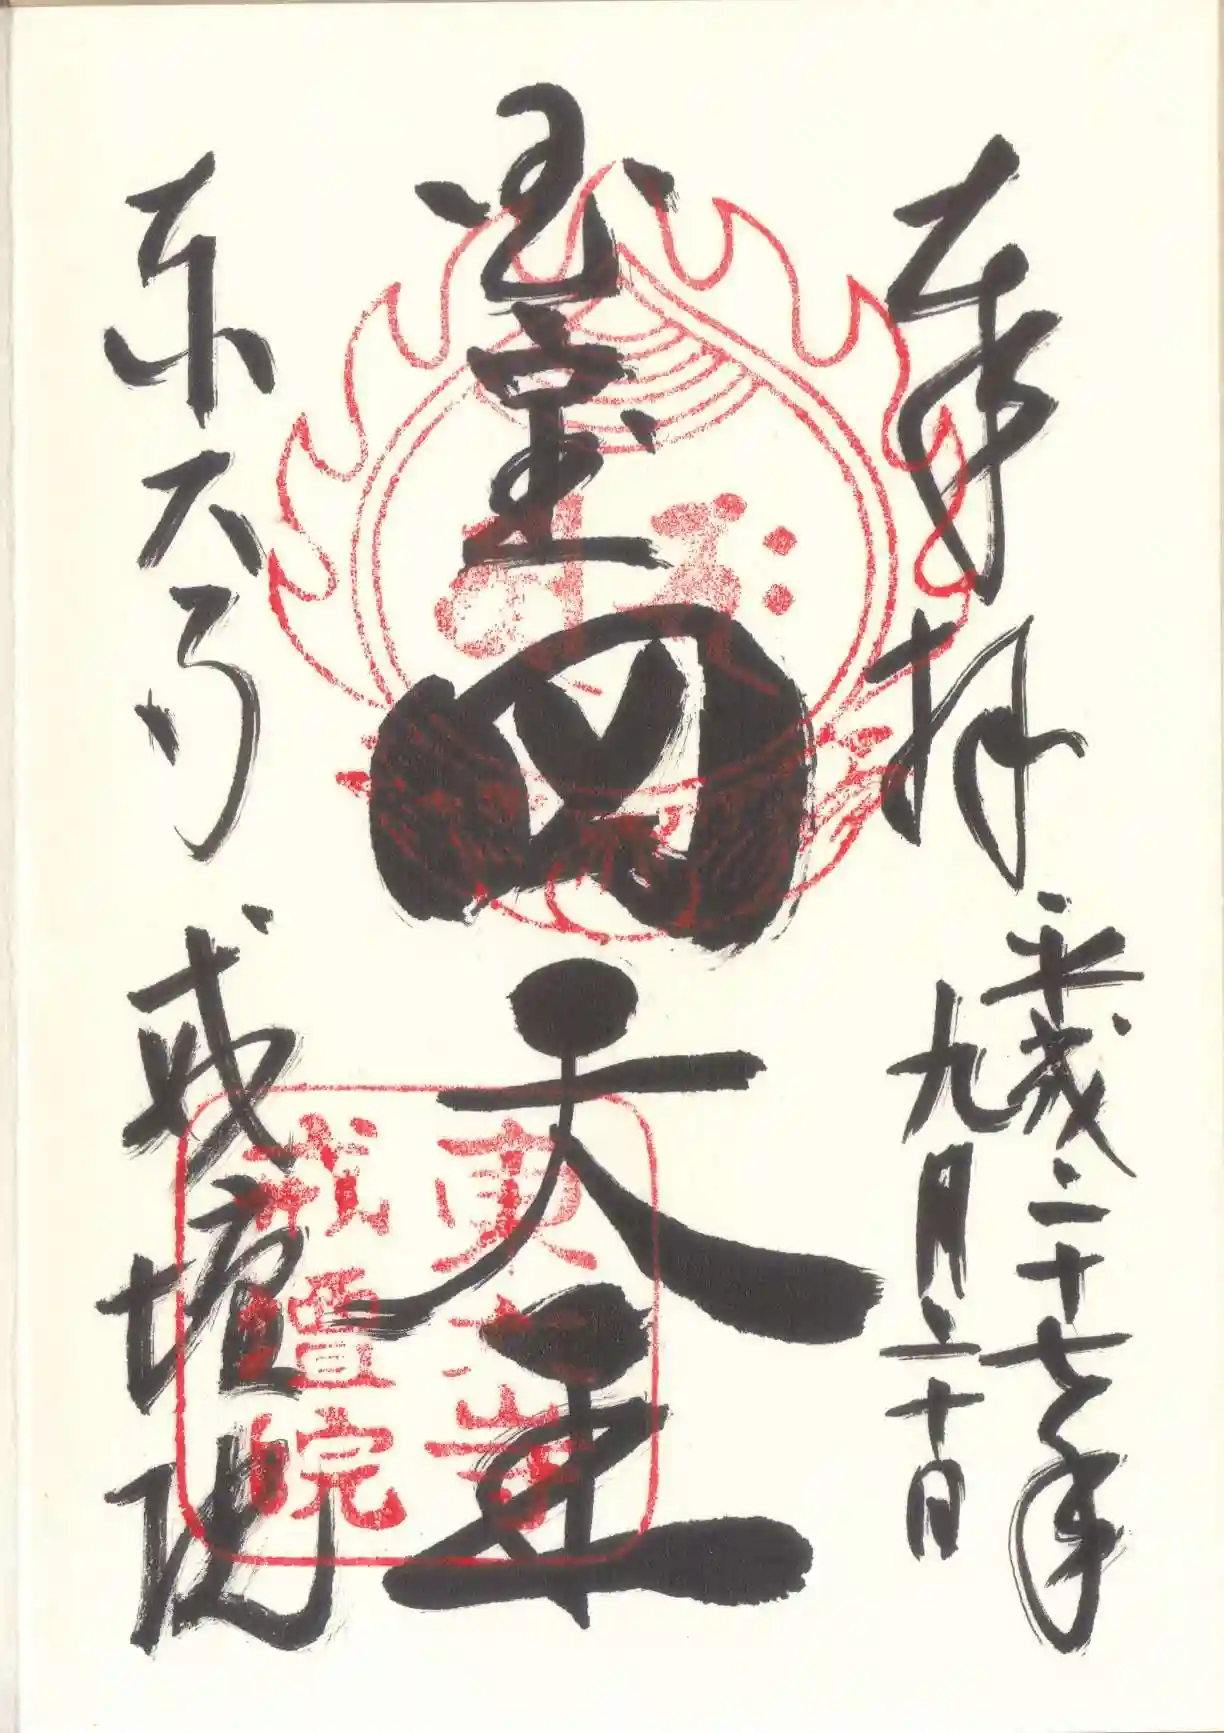 奉拝
平成二十七年
九月二十日
国宝 四天王
東大寺 戒壇院
東大寺
戒壇院